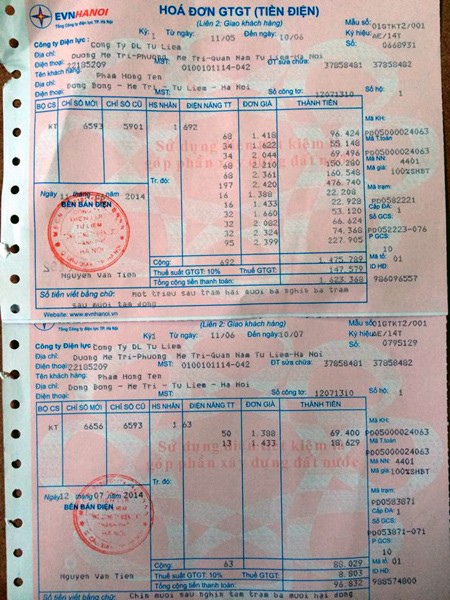 EVNHANOI
Tổng Công ty Điện lực TP. Hà Nội
HOÁ ĐƠN GTGT (TIỀN ĐIỆN)
(Liên 2: Giao khách hàng)
Mẫu số: 01GTKT2/001
Kỳ: 1 Từ ngày 11/05 Đến ngày 10/06
Ký hiệu: AE/14T
Số: 0668931
Công ty Điện lực: Cong Ty DL Tu Liem
Địa chỉ: Duong Me Tri-Phuong Me Tri-Quan Nam Tu Liem-Ha Noi
Điện thoại: 22185209 MST: 0100101114-042 ĐT sửa chữa: 37858481 37858482
Tên khách hàng: Pham Hong Ten
Địa chỉ: Dong Bong - Me Tri - Tu Liem - Ha Noi
Điện thoại: Số công tơ: 12071310 Số hộ: 1
BỘ CS CHỈ SỐ MỚI CHỈ SỐ CŨ HS NHÂN ĐIỆN NĂNG TT ĐƠN GIÁ THÀNH TIỀN
Mã KH:
KT 6593 5901 1 692
PD05000024063
68 1.418 96.424
Mã T.toán
34 1.622 55.148
PD05000024063
34 2.044 69.496
Mã NN: 4401
68 2.210 150.280
Mã giá: 100%SHBT
68 2.361 160.548
Trị. đó: 197 2.420 476.740
Mã trạm:
16 1.388 22.208
PD0582221
16 1.433 22.928
Cấp ĐA: 1
32 1.660 53.120
Số GCS:
32 2.082 66.624
PD052223-076
32 2.324 74.368
P GCS:
95 2.399 227.905
10
Sử dụng điện tiết kiệm là
góp phần xây dựng đất nước
2014
BÊN BÁN ĐIỆN
Nguyen Van Tien
Cộng: 692 1.475.789
Mã tổ: 01
Thuế suất GTGT: 10% Thuế GTGT: 147.579
ID HĐ:
Tổng cộng tiền thanh toán: 1.623.368
986096557
Số tiền viết bằng chữ: Mot trieu sau tram hai muoi ba nghin ba tram
sau muoi tam dong
Website: www.evnhanoi.vn
EVNHANOI
Tổng Công ty Điện lực TP. Hà Nội
(Liên 2: Giao khách hàng)
Mẫu số: 01GTKT2/001
Kỳ: 1 Từ ngày 11/06 Đến ngày 10/07
Ký hiệu: AE/14T
Số: 0795129
Công ty Điện lực: Cong Ty DL Tu Liem
Địa chỉ: Duong Me Tri-Phuong Me Tri-Quan Nam Tu Liem-Ha Noi
Điện thoại: 22185209 MST: 0100101114-042 ĐT sửa chữa: 37858481 37858482
Tên khách hàng: Pham Hong Ten
Địa chỉ: Dong Bong - Me Tri - Tu Liem - Ha Noi
Điện thoại: Số công tơ: 12071310 Số hộ: 1
BỘ CS CHỈ SỐ MỚI CHỈ SỐ CŨ HS NHÂN ĐIỆN NĂNG TT ĐƠN GIÁ THÀNH TIỀN
Mã KH:
KT 6656 6593 1 63
PD05000024063
50 1.388 69.400
Mã T.toán
13 1.433 18.629
PD05000024063
Mã NN: 4401
Mã giá: 100%SHBT
Sử dụng điện tiết kiệm là
góp phần xây dựng đất nước
Ngày 12 tháng 07 năm 2014
BÊN BÁN ĐIỆN
Trị. đó:
Mã trạm:
PD0583871
Cấp ĐA: 1
Số GCS:
PD053871-071
P GCS:
10
Nguyen Van Tien
Cộng: 63 88.029
Mã tổ: 01
Thuế suất GTGT: 10% Thuế GTGT: 8.803
ID HĐ:
Tổng cộng tiền thanh toán: 96.832
988574800
Số tiền viết bằng chữ: Chin muoi sau nghin tam tram ba muoi hai dong